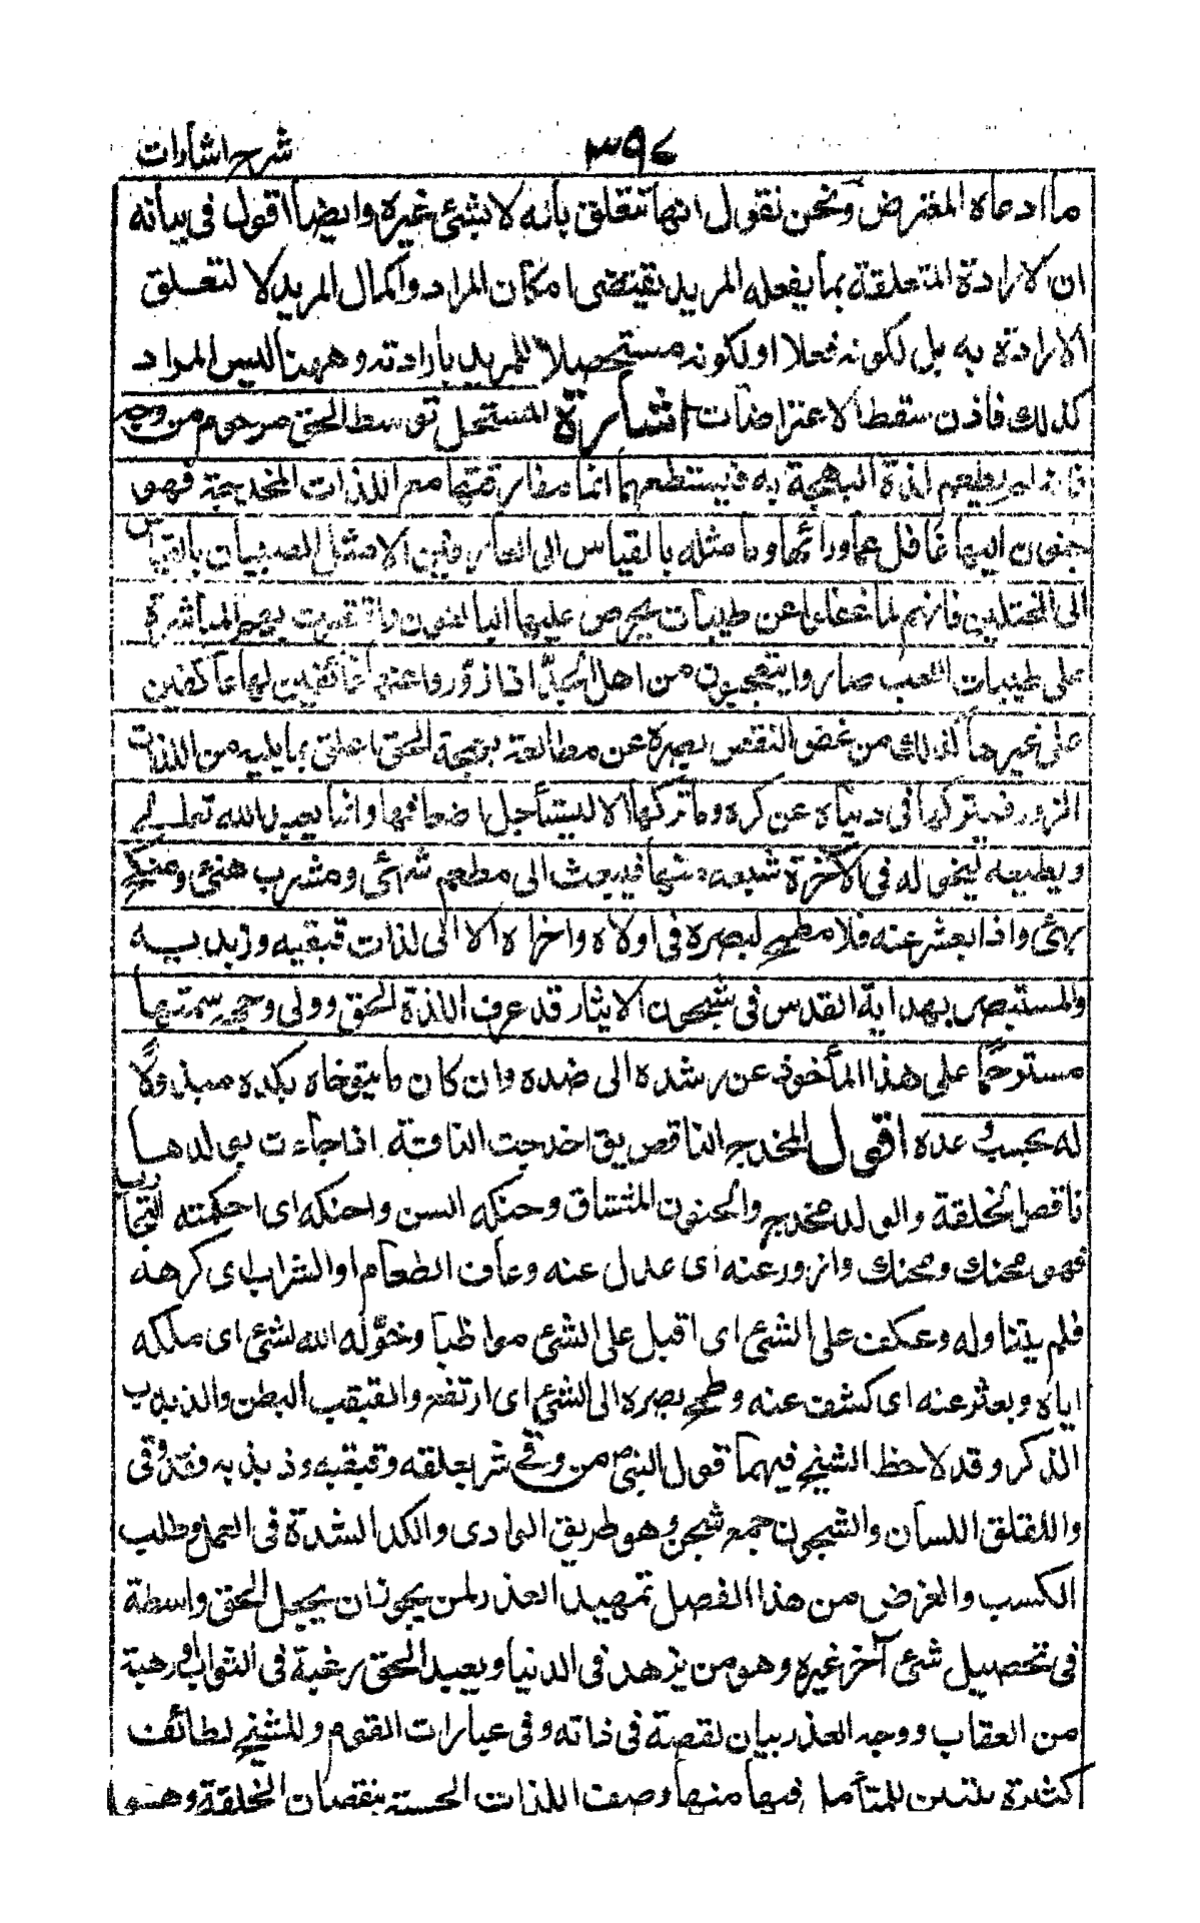 شرح اشارات ٣٩٤
ما ادعاه المعترض ونحن نقول انها تتعلق بانه لا بشئ غيره وايضا اقول فى بيانه
ان الارادة المتعلقة بما يفعله المريد يقتضى امكان المراد واكمال المريد لا لتعلق
الارادة به بل لكونه فعلا او لكونه مستحصلا للمريد بارادته وههنا ليس المراد
كذلك فاذن سقط الاعتراضات اشارة المستحل توسط الحق مرحوم من وجه
فانه لم يطعم لذة البهجة به فيستطعمها انما مفارقتها مع اللذات المخدجة فهو
حنون اليها غافل عما ورائها وما مثله بالقياس الى العارفين الا مثل الصبيان بالقياس
الى المحتنكين فانهم لما غفلوا عن طيبات يحرص عليها البالغون واقتصرت بهم المباشرة
على طيبات اللعب صاروا يتعجبون من اهل الجد اذا ازوروا عنها عائفين لها عاكفين
على غيرها كذلك من غض النقص بصره عن مطالعة بهجة الحق اعلق بما يليه من اللذات
الزور فيتركها فى دنياه عن كره وما تركها الا ليستأجل اضعافها وانما يعبد الله تعالى
ويطيعه ليخوله فى الآخرة شبعه منها فيبعث الى مطعم شهى ومشرب هنئ ومنكح
بهى واذا بعثر عنه فلا مطمح لبصره فى اولاه واخراه الا الى لذات قبقبه وذبذبه
والمستبصر بهداية القدس فى شجون الايثار قد عرف اللذة الحق وولى وجهه سمتها
مسترحما على هذا المأخوذ عن رشده الى ضده وان كان ما يتوخاه بكده مبذولا
له بحسب وعده اقول المخدج الناقص يق اخدجت الناقة اذا جاءت بولدها
ناقص الخلقة والولد مخدج والحنون المشتاق وحنكه السن واحنكه اى احكمته التجارب
فهو محنك ومحنك وازور عنه اى عدل عنه وعاف الطعام او الشراب اى كرهه
فلم يتناوله وعكف على الشئ اى اقبل على الشئ مواظبا وخوله الله لشئ اى ملكه
اياه وبعثر عنه اى كشف عنه وطمح بصره الى الشئ اى ارتفع والقبقب البطن والذبذب
الذكر وقد لاحظ الشيخ فيهما قول النبى ص من وقى شر لقلقه وقبقبه وذبذبه فقد وقى
واللقلق اللسان والشجون جمع شجن وهو طريق الوادى والكد الشدة فى العمل وطلب
الكسب والغرض من هذا الفصل تمهيد العذر لمن يجوز ان يجعل الحق واسطة
فى تحصيل شئ آخر غيره وهو من يزهد فى الدنيا ويعبد الحق رغبة فى الثواب ورهبة
من العقاب ووجه العذر بيان نقصه فى ذاته وفى عبارات القوم وللشيخ لطائف
كثيرة يتبين للمتأمل فيها منها وصف اللذات الحسية بنقصان الخلقة